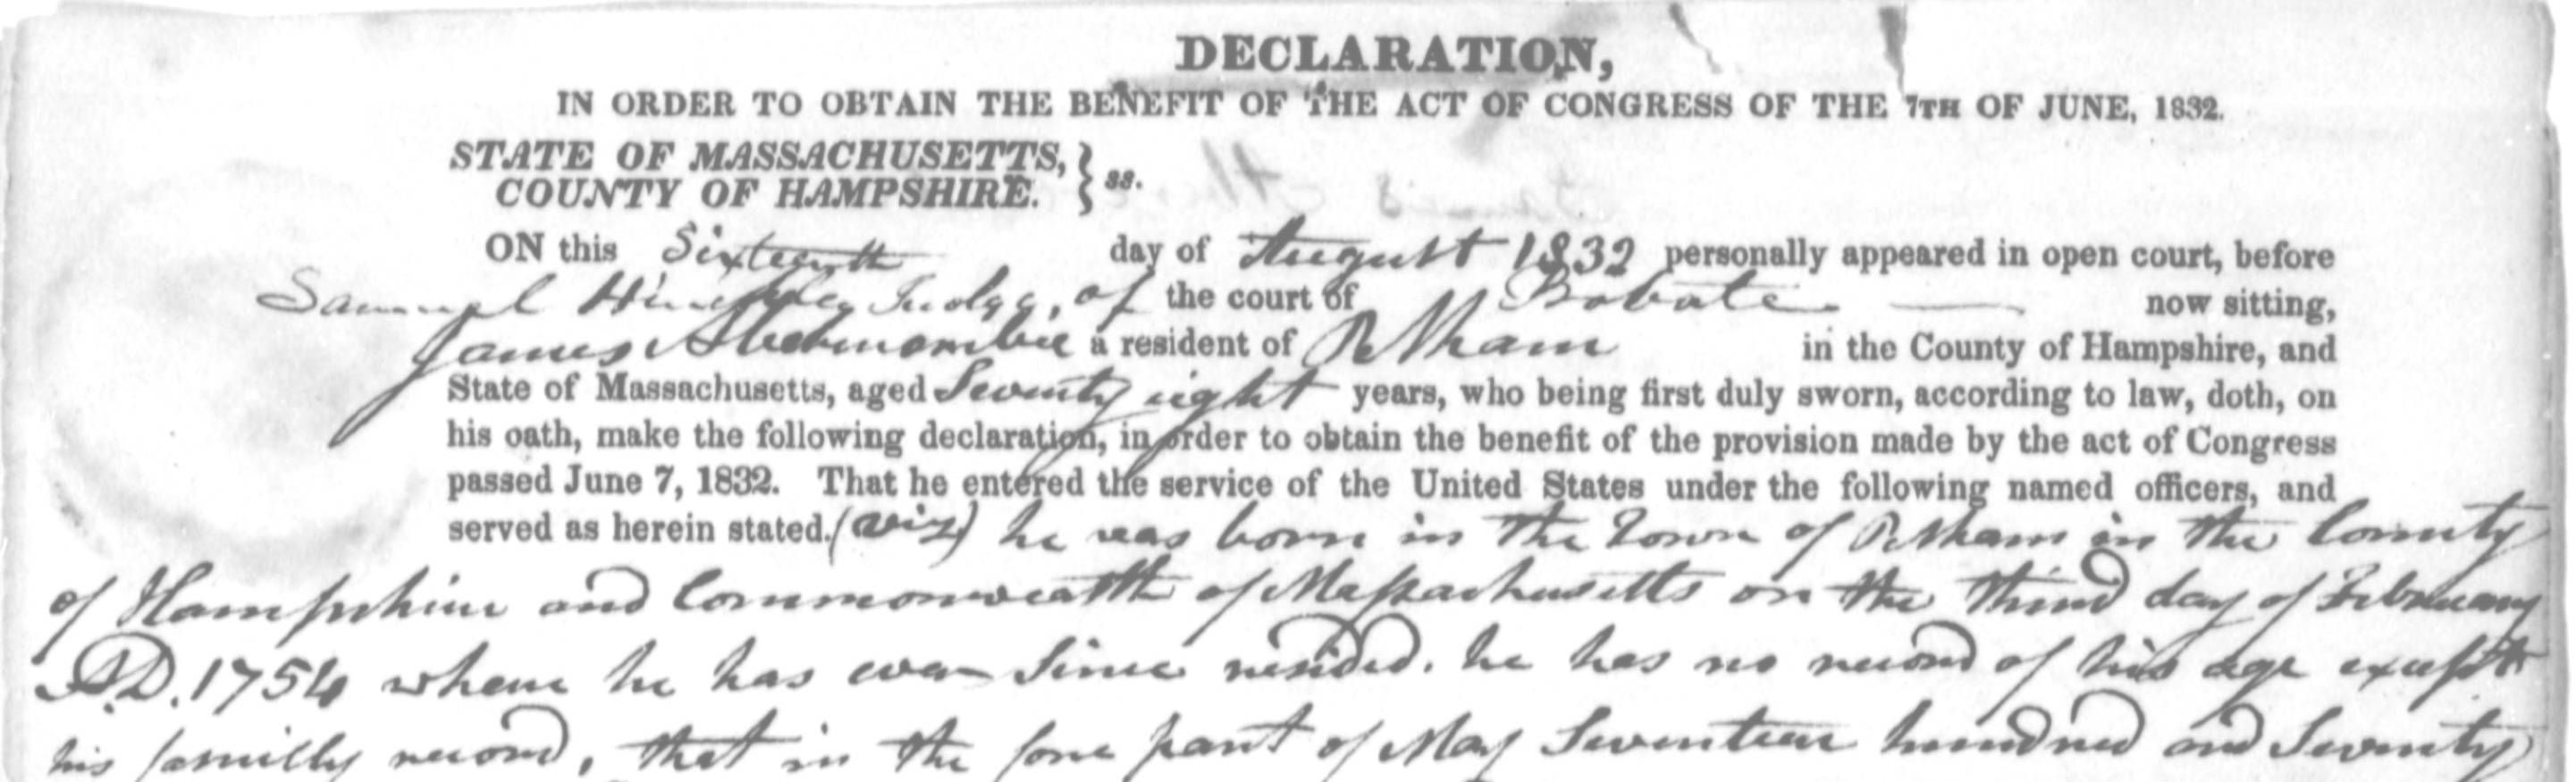 DECLARATION,
IN ORDER TO OBTAIN THE BENEFIT OF THE ACT OF CONGRESS OF THE 7TH OF JUNE, 1832.
STATE OF MASSACHUSETTS, }
COUNTY OF HAMPSHIRE. } ss.
ON this Sixteenth day of August 1832 personally appeared in open court, before
Samuel Hinckley Judge, of the court of Probate — now sitting,
James Abercrombie a resident of Pelham in the County of Hampshire, and
State of Massachusetts, aged Seventy eight years, who being first duly sworn, according to law, doth, on
his oath, make the following declaration, in order to obtain the benefit of the provision made by the act of Congress
passed June 7, 1832. That he entered the service of the United States under the following named officers, and
served as herein stated. (viz) he was born in the Town of Pelham in the County
of Hampshire and Commonwealth of Massachusetts on the third day of February
A.D. 1754 where he has ever Since resided. he has no record of his age except
his familly record, that in the fore part of May Seventeen hundred and Seventy